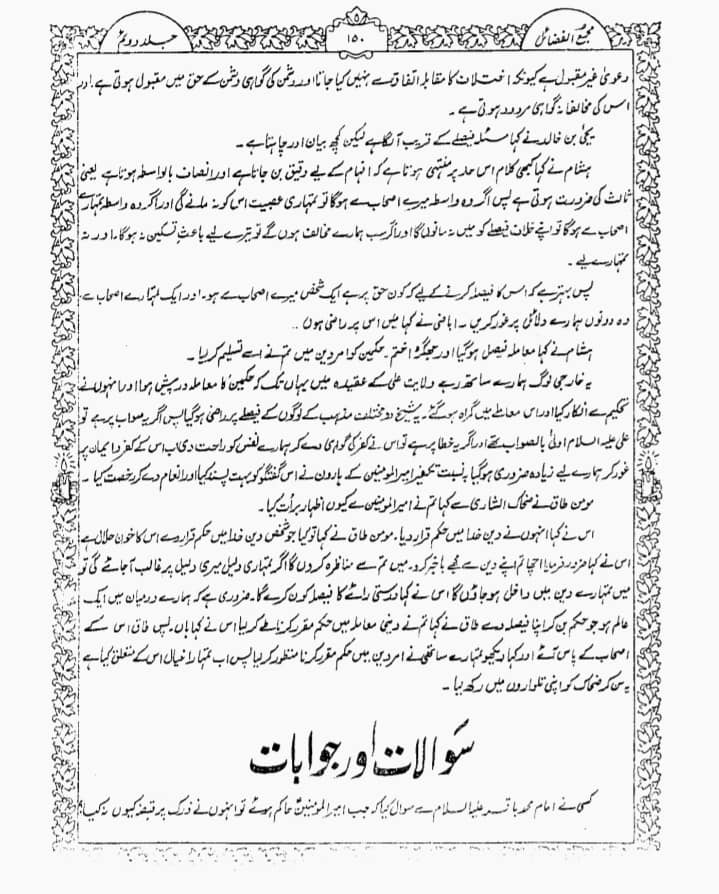 مجمع الفضائل
۱۵۰
جلد دوم
دعویٰ غیر مقبول ہے کیونکہ اختلاف کا مقابلہ اتفاق سے نہیں کیا جاتا اور دشمن کی گواہی دشمن کے حق میں مقبول ہوتی ہے اور
اس کی مخالفانہ گواہی مردود ہوتی ہے ۔
یحییٰ بن خالد نے کہا مسئلہ فیصلے کے قریب آ لگا ہے لیکن کچھ بیان اور چاہتا ہے ۔
ہشام نے کہا کبھی کلام اس حد پر منتہی ہوتا ہے کہ افہام کے لیے دقیق بن جاتا ہے اور انصاف بالواسطہ ہوتا ہے یعنی
ثالث کی ضرورت ہوتی ہے پس اگر وہ واسطہ میرے اصحاب سے ہوگا تو تمہاری عصبیت اس کو نہ ملنے گی اور اگر وہ واسطہ تمہارے
اصحاب سے ہوگا تو اپنے خلاف فیصلے کو میں نہ مانوں گا اور اگر سب ہمارے مخالف ہوں گے تو تیرے لیے باعثِ تسکین نہ ہوگا۔ اور نہ
تمہارے لیے ۔
پس بہتر ہے کہ اس کا فیصلہ کرنے کے لیے کہ کون حق پر ہے ایک شخص میرے اصحاب سے ہو۔ اور ایک تمہارے اصحاب سے
وہ دونوں ہمارے دلائل پر غور کریں ۔ اباضی نے کہا میں اس پر راضی ہوں ..
ہشام نے کہا معاملہ فیصل ہو گیا اور جھگڑا ختم ۔ حکمین کو امر دین میں تم نے اسے تسلیم کر لیا ۔
یہ خارجی لوگ ہمارے ساتھ رہے ولایت علی کے عقیدہ میں یہاں تک کہ حکمین کا معاملہ درپیش ہوا اور انہوں نے
تحکیم سے انکار کیا اور اس معاملے میں گمراہ ہو گئے۔ یہ شیخ دو مختلف مذہب کے لوگوں کے فیصلے پر راضی ہو گیا پس اگر یہ صواب پر ہے تو
علی علیہ السلام اولیٰ بالصواب تھے اور اگر یہ خطا پر ہے تو اس نے کفر کی گواہی دے کر ہمارے نفس کو راحت دی اب اس کے کفر و ایمان پر
غور کر ہمارے لیے زیادہ ضروری ہو گیا بہ نسبت تکفیر امیرالمومنین کے ہارون نے اس گفتگو کو بہت پسند کیا اور انعام دے کر رخصت کیا ۔
مومن طاق نے ضحاک الشاری سے کہا تم نے امیرالمومنین سے کیوں اظہار برأت کیا ۔
اس نے کہا انہوں نے دین خدا میں حکم قرار دیا ۔ مومن طاق نے کہا تو کیا جو شخص دین خدا میں حکم قرار دے اس کا خون حلال ہے
اس نے کہا ضرور فرمایا اچھا تم اپنے دین سے مجھے باخبر کرو۔ میں تم سے مناظرہ کروں گا اگر تمہاری دلیل میری دلیل پر غالب آ جائے گی تو
میں تمہارے دین میں داخل ہو جاؤں گا اس نے کہا درستی رائے کا فیصلہ کون کرے گا۔ ضروری ہے کہ ہمارے درمیان میں ایک
عالم ہو جو حکم بن کر اپنا فیصلہ دے طاق نے کہا تم نے دینی معاملہ میں حکم مقرر کرنا طے کر لیا اس نے کہا ہاں ۔ پس طاق اس کے
اصحاب کے پاس آئے اور کہا دیکھو تمہارے ساتھی نے امر دین میں حکم مقرر کرنا منظور کر لیا پس اب تمہارا خیال اس کے متعلق کیا ہے
یہ سن کر ضحاک کو اپنی تلواروں میں رکھ لیا ۔
سوالات اور جوابات
کسی نے امام محمد باقر علیہ السلام سے سوال کیا کہ جب امیرالمومنینؑ حاکم ہوئے تو انہوں نے فدک پر قبضہ کیوں نہ کیا؟